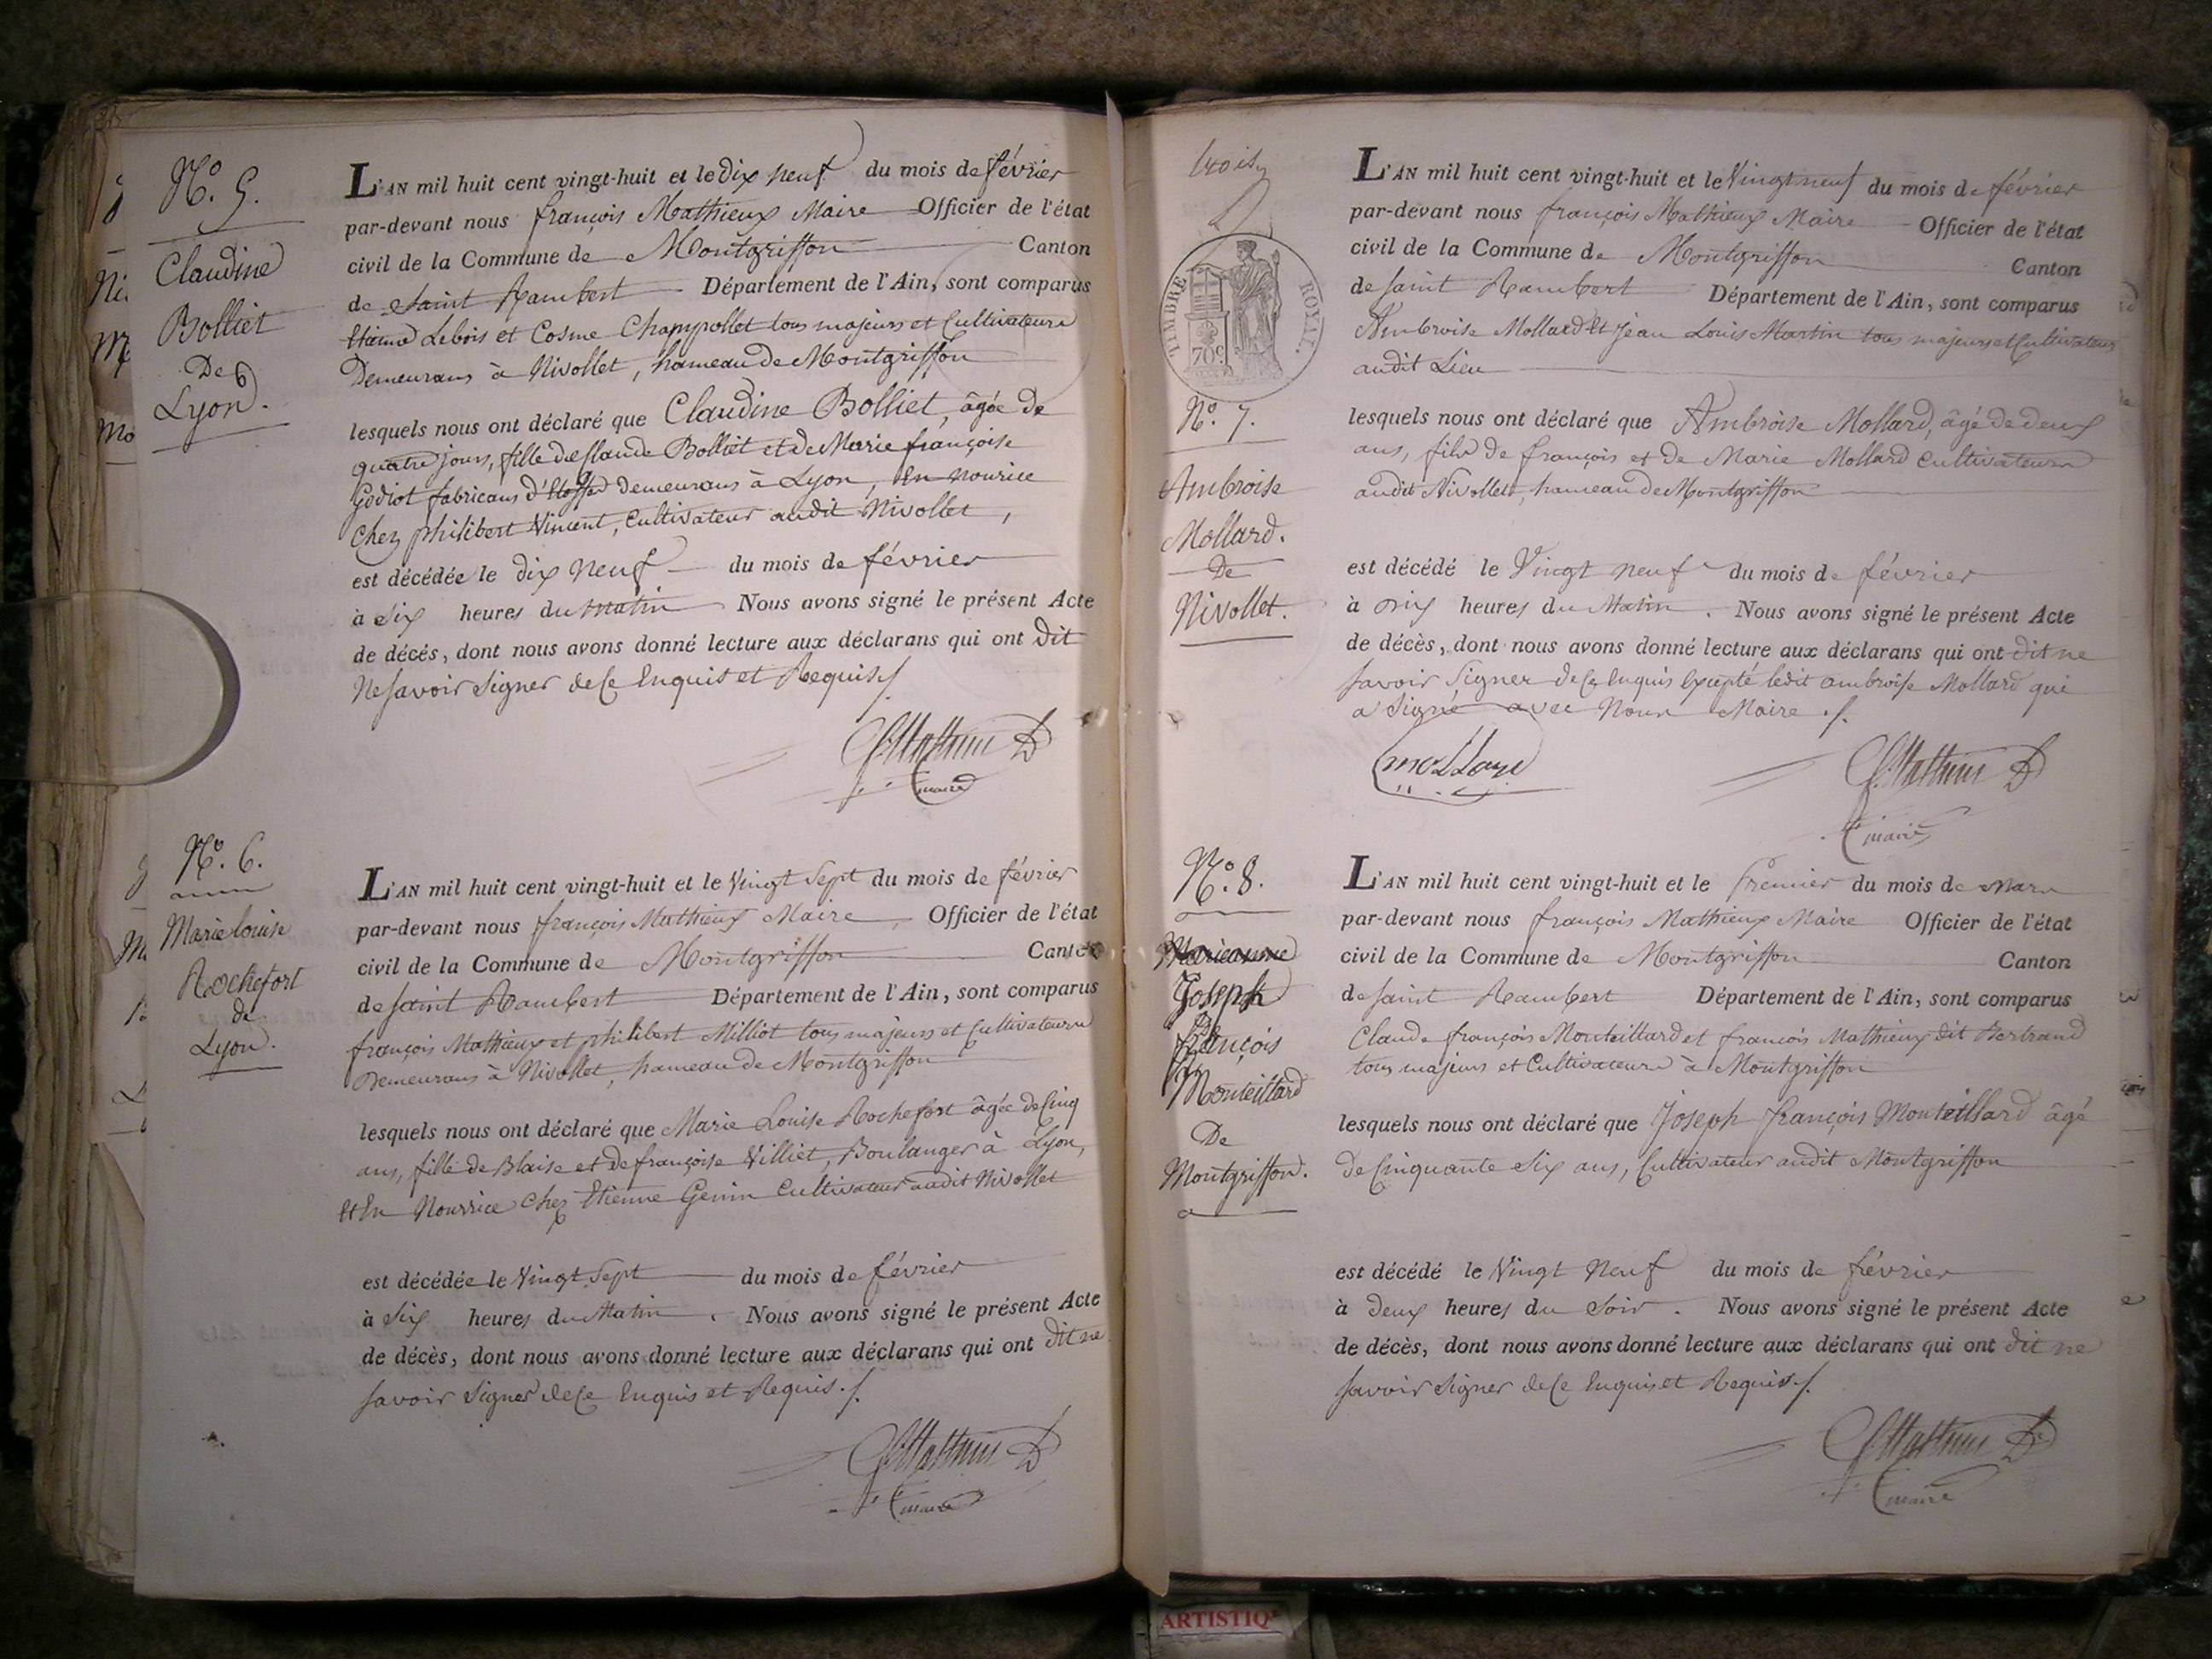 N.º 5.
Claudine
Bolliet
De
Lyon.
L'AN mil huit cent vingt-huit et le Dix neuf du mois de février
par-devant nous françois Mathieux Maire Officier de l'état
civil de la Commune de Montgriffon Canton
de Saint Rambert Département de l'Ain, sont comparus
Etienne Lebois et Cosme Champollet tous majeurs et Cultivateurs
Demeurans à Nivollet, hameau de Montgriffon
lesquels nous ont déclaré que Claudine Bolliet, âgée De
quatre jours, fille de Claude Bolliet et de Marie françoise
Godiot fabricans d'Etoffes demeurans à Lyon, En nourice
chez philibert Vincent, Cultivateur audit Nivollet,
est décédée le dix neuf du mois de février
à Six heures du matin Nous avons signé le présent Acte
de décés, dont nous avons donné lecture aux déclarans qui ont Dit
Ne savoir signer de Ce Enquis et Requis
maire
N.º 6.
Marie louise
Rochefort
de
Lyon.
L'AN mil huit cent vingt-huit et le Vingt Sept du mois de février
par-devant nous françois Mathieux Maire Officier de l'état
civil de la Commune de Montgriffon Canton
de saint Rambert Département de l'Ain, sont comparus
françois Mathieux et philibert Milliot tous majeurs et Cultivateurs
Demeurans à Nivollet, hameau de Montgriffon
lesquels nous ont déclaré que Marie Louise Rochefort âgée de Cinq
ans, fille de Blaise et de françoise Villiet, Boulanger à Lyon,
Et En Nourrice chez Etienne Genin Cultivateur audit Nivollet
est décédée le Vingt Sept du mois de février
à Six heures du Matin. Nous avons signé le présent Acte
de décès, dont nous avons donné lecture aux déclarans qui ont dit ne
savoir signer de Ce Enquis et Requis.
maire
trois
TIMBRE ROYAL.
70c.
N.º 7.
Ambroise
Mollard.
De
Nivollet.
L'AN mil huit cent vingt-huit et le Vingt neuf du mois de février
par-devant nous françois Mathieux Maire Officier de l'état
civil de la Commune de Montgriffon Canton
de saint Rambert Département de l'Ain, sont comparus
Ambroise Mollard Et jean Louis Martin tous majeurs et Cultivateurs
audit Lieu
lesquels nous ont déclaré que Ambroise Mollard, âgé de deux
ans, fils de françois et de Marie Mollard cultivateurs
audit Nivollet, hameau de Montgriffon
est décédé le Vingt neuf du mois de février
à heures du Matin. Nous avons signé le présent Acte
de décès, dont nous avons donné lecture aux déclarans qui ont dit ne
savoir signer de Ce Enquis Excepté ledit ambroise Mollard qui
a signé avec Nous Maire.
mollard
maire
N.º 8.
Marieanne
Joseph
françois
Monteillard
De
Montgriffon.
L'AN mil huit cent vingt-huit et le Premier du mois de mars
par-devant nous françois Mathieux Maire Officier de l'état
civil de la Commune de Montgriffon Canton
de saint Rambert Département de l'Ain, sont comparus
Claude françois Monteillard et françois Mathieux dit Bertrand
tous majeurs et Cultivateurs à Montgriffon
lesquels nous ont déclaré que Joseph françois Monteillard âgé
de Cinquante Six ans, Cultivateur audit Montgriffon
est décédé le Vingt Neuf du mois de février
à deux heures du Soir. Nous avons signé le présent Acte
de décès, dont nous avons donné lecture aux déclarans qui ont dit ne
savoir signer de Ce Enquis et Requis.
maire
ARTISTIQ